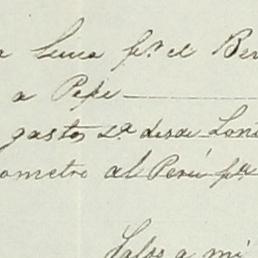 a Lima pr. el Ber
a Pepe
gastos 2a. desde Lon
ometro al Perú pa.
Saldo a mi